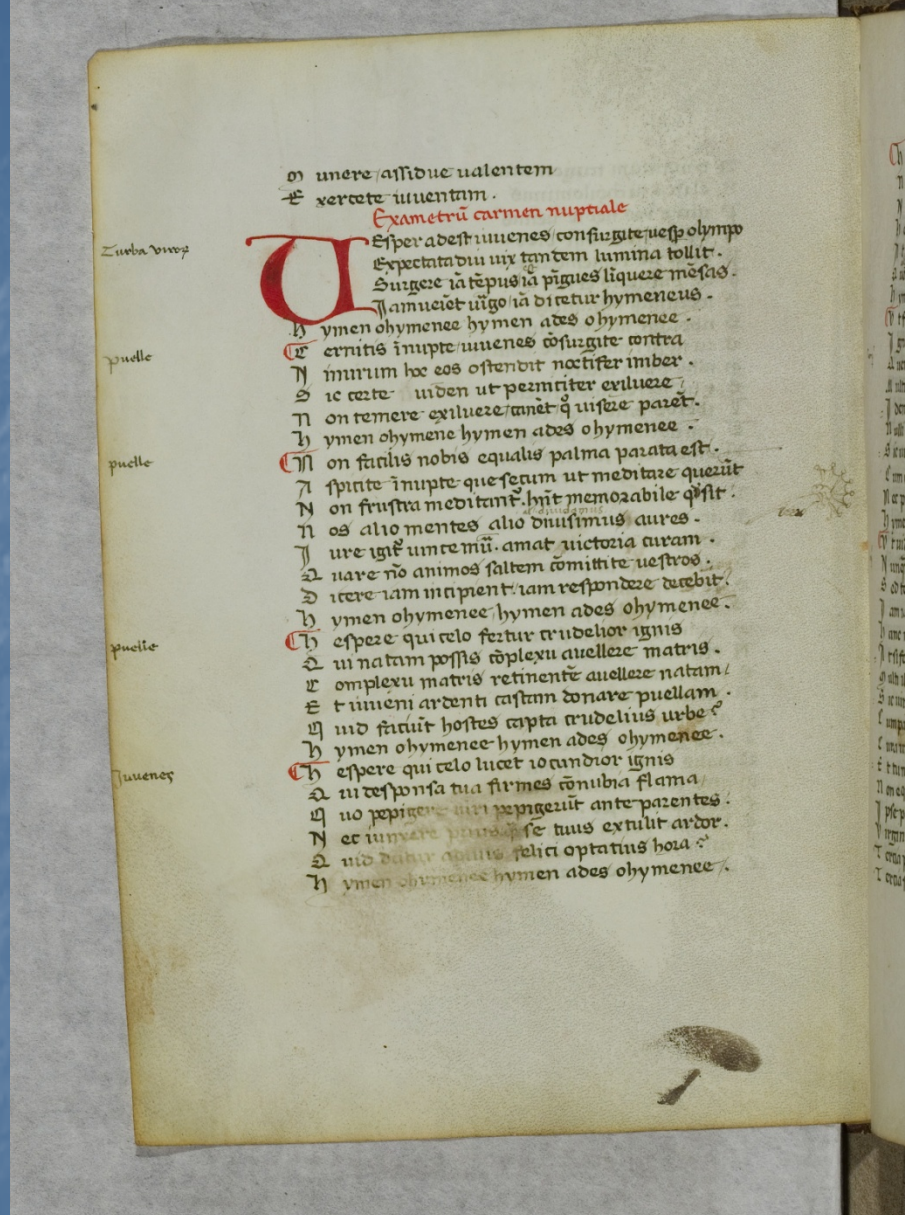 M unere assidue ualentem
E xercete iuuentam.
Exametrū carmen nuptiale
Turba viroꝝ
VEsper adest iuuenes consurgite uesꝑ olympo
Expectata diu uix tandem lumina tollit.
Surgere iā tēpus iā pīgues liquere mēsas.
Jam ueīet uīgo iā dicetur hymeneus.
H ymen ohymenee hymen ades ohymenee.
puelle
C ernitis īnupte iuuenes cōsurgite contra
N imirum hoc eos ostendit noctifer imber.
S ic certe uiden ut perniciter exiluere
N on temere exiluere canēt ꝙ uisere parēt.
H ymen ohymene hymen ades ohymenee.
puelle
N on facilis nobis equalis palma parata est.
A spicite īnupte que secum ut meditare querūt
N on frustra meditant. hn̄t memorabile qͥsit.
N os alio mentes alio diuisimus aures.
J ure igit᷑ uincemū. amat uictoria curam.
Q uare nō animos saltem cōmittite uestros.
D icere iam incipient. iam respondere decebit.
H ymen ohymenee hymen ades ohymenee.
puelle
H espere qui celo fertur crudelior ignis
Q ui natam possis cōplexu auellere matris.
C omplexu matris retinentē auellere natam
E t iuueni ardenti castam donare puellam.
Q uid faciūt hostes capta crudelius urbe?
H ymen ohymenee hymen ades ohymenee.
Juuenes
H espere qui celo lucet iocundior ignis
Q ui desponsa tua firmes cōnubia flama
Q uo pepigere uiri pepigerūt ante parentes.
N ec iunxere prius ꝙ se tuus extulit ardor.
Q uid datur felici optatius hora?
H ymen ohymenee hymen ades ohymenee.